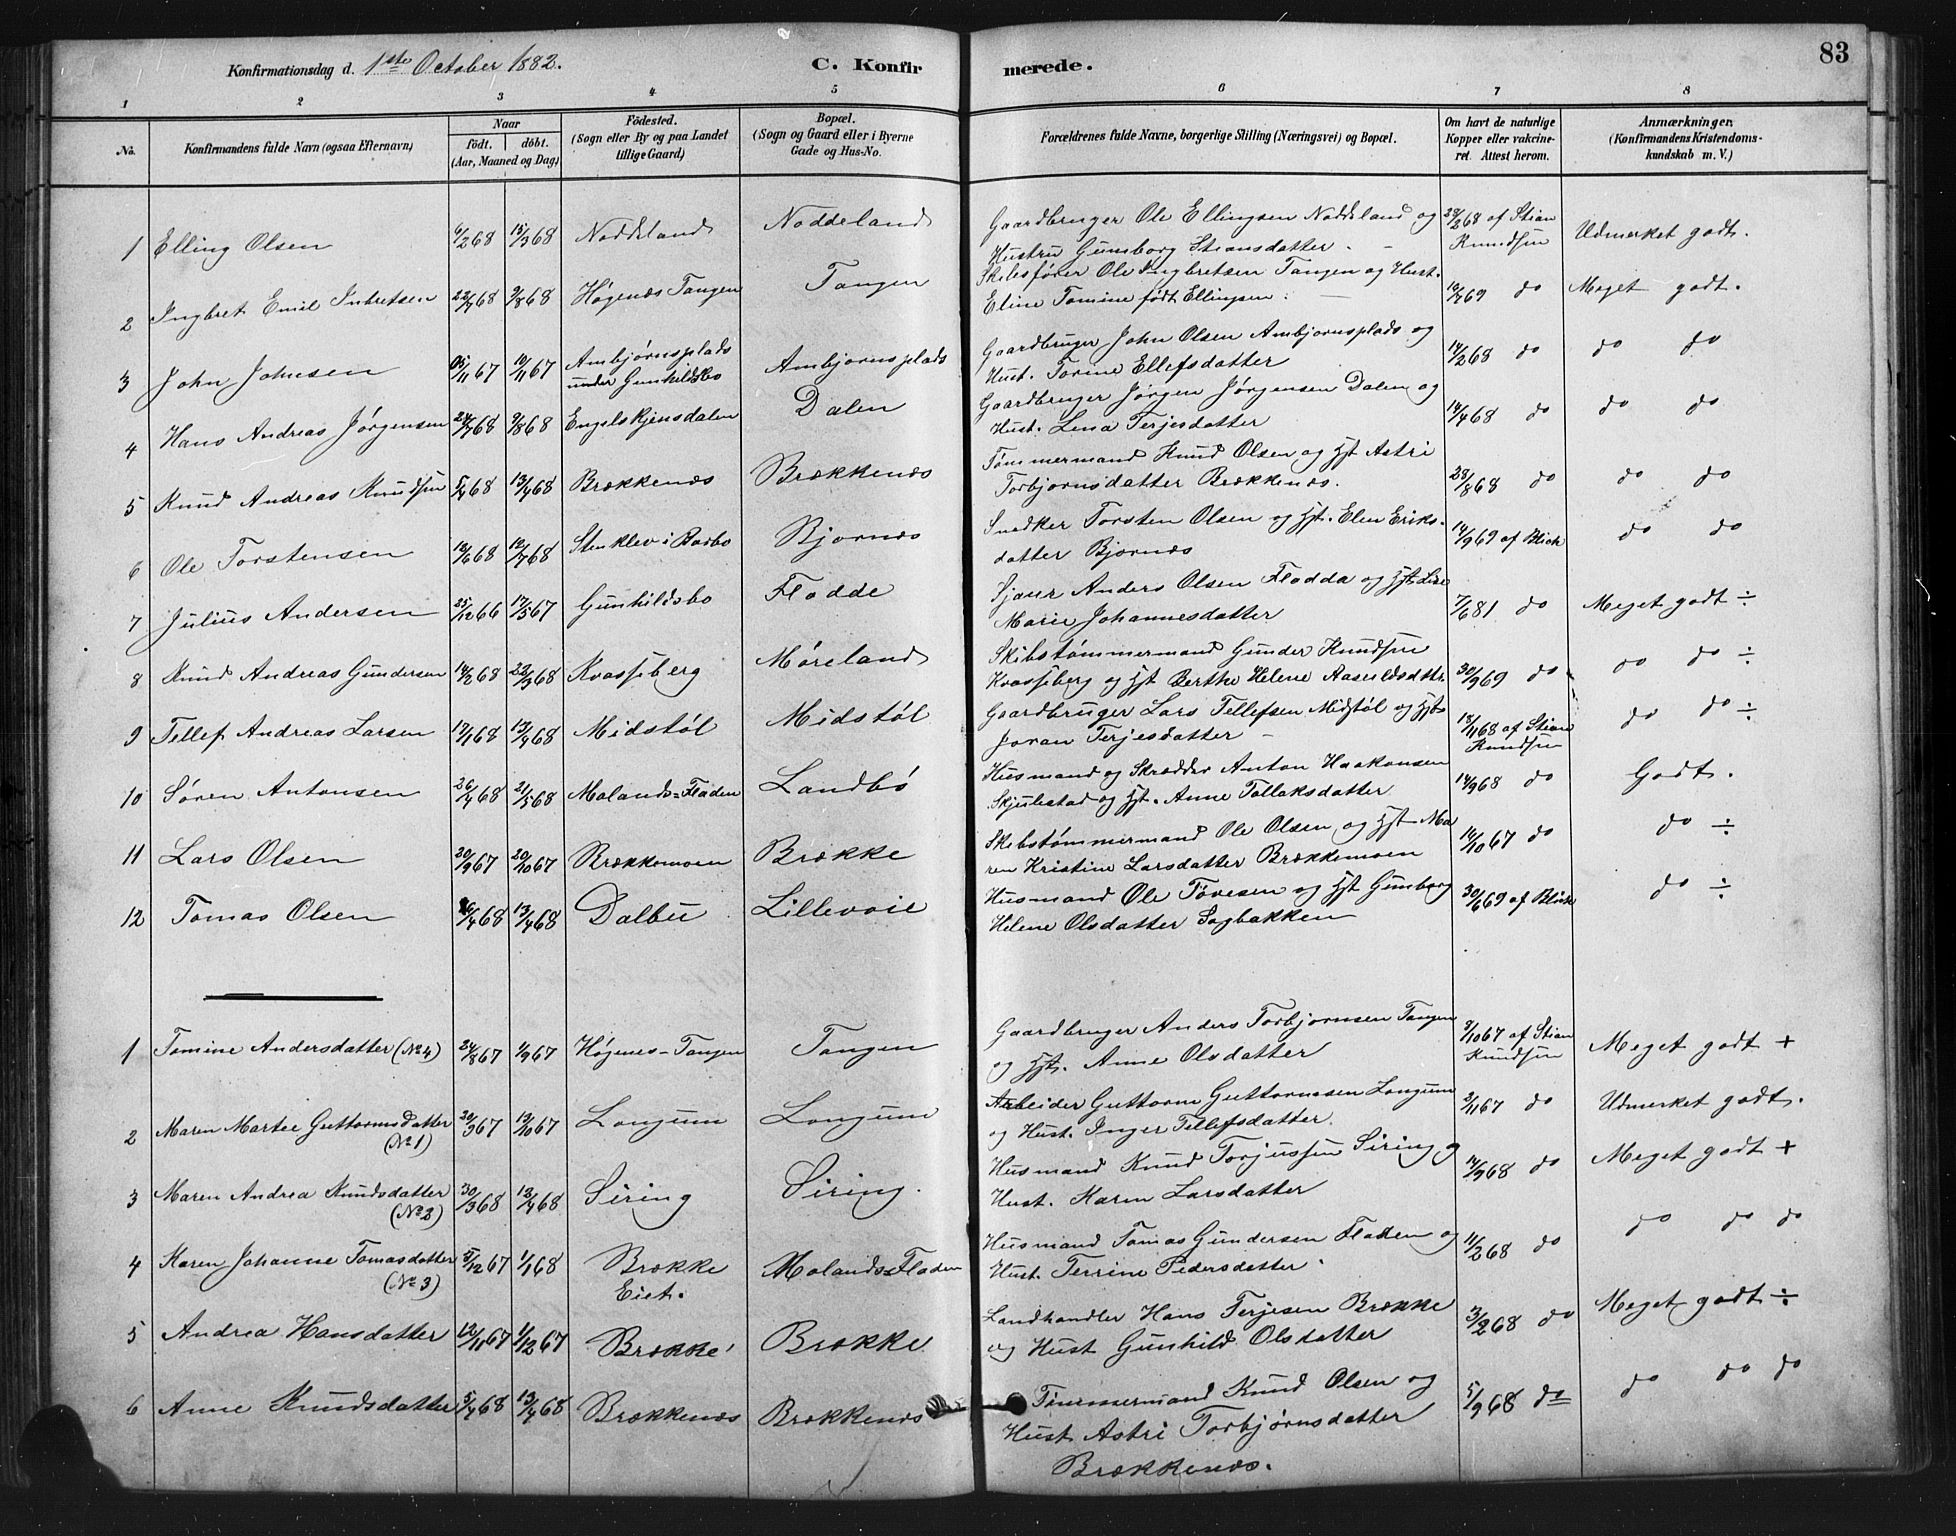 Konfirmationsdag d. 1ste October 1882.
C. Konfirmerede.
83
1 2 3 4 5 6 7 8
No.
Konfirmandens fulde Navn (ogsaa Efternavn)
Naar
født. døbt.
(Aar, Maaned og Dag)
Fødested.
(Sogn eller By og paa Landet
tillige Gaard)
Bopæl.
(Sogn og Gaard eller i Byerne
Gade og Hus-No.
Forældrenes fulde Navne, borgerlige Stilling (Næringsvei) og Bopæl.
Om havt de naturlige
Kopper eller vakcine-
ret. Attest herom.
Anmærkninger.
(Konfirmandens Kristendoms-
kundskab m. V.)
1 Elling Olsen 6/2 68 15/3 68 Noddeland Noddeland
Gaardbruger Ole Ellingsen Noddeland og
Hustru Gunborg Stiansdatter.
28/2 68 af Stian
Knudsen
Udmerket godt.
2 Ingbret Emil Inbretsen 22/7 68 9/8 68 Høgenæs Tangen Tangen
Skibsfører Ole Ingbretsen Tangen og Hust.
Eline Tomine født Ellingsen.
do Meget godt.
3 John Johnsen 10/11 67 Ambjørnsplads
under Gunhildsbo
Ambjornsplads
Gaardbruger John Olsen Ambjornsplads og
Hust. Torine Ellefsdatter
14/2 68 do do do
4 Hans Andreas Jørgensen 24/7 68 9/8 68 Engelskjensdalen Dalen
Gaardbruger Jørgen Jørgensen Dalen og
Hust. Lena Terjesdatter
14/4 68 do do do
5 Knud Andreas Knudsen 5/4 68 13/4 68 Brækkenæs Brækkenæs
Tømmermand Knud Olsen og Hst Astri
Torbjornsdatter Brækkenæs.
28/8 68 do do do
6 Ole Torstensen 12/7 68 Stenklev i Barbo Bjornæs
Snedker Torsten Olsen og Hst. Elen Eriks-
datter Bjornæs
14/9 69 af Blich do do
7 Julius Andersen 25/12 66 17/3 67 Gunhildsbo Flodde
Sjømr Anders Olsen Flodda og Hst Lise
Marie Johannesdatter
7/6 81 do Meget godt ÷
8 Knud Andreas Gundersen 14/2 68 22/3 68 Kvasseberg Møreland
Skibstømmermand Gunder Knudsen
Kvasseberg og Hst Berthe Helene Aasuldsdttr
30/9 69 do do do ÷
9 Tellef Andreas Larsen 13/4 68 Midstøl Midstøl
Gaardbruger Lars Tellefsen Midstøl og Hst
Joran Terjesdatter
18/11 68 af Stian
Knudsen
do do ÷
10 Søren Antonsen 26/4 68 21/5 68 Molands=Fladen Landbø
Husmand og Skrædder Anton Haakonsen
Skjulestad og Hst. Anne Tollaksdatter
14/9 68 do Godt.
11 Lars Olsen 20/9 67 20/10 67 Brækkemoen Brække
Skibstømmermand Ole Olsen og Hst Ma
ren Kristine Larsdatter Brækkemoen
14/10 67 do do ÷
12 Tomas Olsen 13/4 68 Dalbu Lillevoie
Husmand Ole Tovesen og Hst Gunborg
Helene Olsdatter Sagbakken
30/6 69 af Blich do ÷
1 Tomine Andersdatter (No 4) 24/8 67 1/9 67 Høgenes-Tangen Tangen
Gaardbruger Anders Torbjornsen Tangen
og Hst. Anne Olsdatter
9/10 67 af Stian
Knudsen
Meget godt +
2 Maren Martee Guttormsdatter
(No 1)
20/9 67 13/10 67 Longum Longum
Arbeider Guttorm Guttormsen Longum
og Hust. Inger Tellefsdatter.
3/11 67 do Udmerket godt.
3 Maren Andrea Knudsdatter
(No 2)
30/3 68 12/4 68 Siring Siring.
Husmand Knud Torjussen Siring og
Hust. Karen Larsdatter
14/9 68 do Meget godt +
4 Karen Johanne Tomasdatter
(No 3)
5/12 67 1/1 68 Brække
Eiet.
Molands=Fladen
Husmand Tomas Gundersen Fladen og
Hust. Terrine Pedersdatter.
11/2 68 do do do do
5 Andrea Hansdatter 12/11 67 1/12 67 Brække Brække
Landhandler Hans Terjesen Brække
og Hust Gunhild Olsdatter
3/2 68 do Meget godt ÷
6 Anne Knudsdatter 5/4 68 13/4 68 Brækkenæs Brækkenæs
Tømmermand Knud Olsen og
Hust Astri Torbjørnsdatter
Brækkenæs.
5/9 68 do do do do